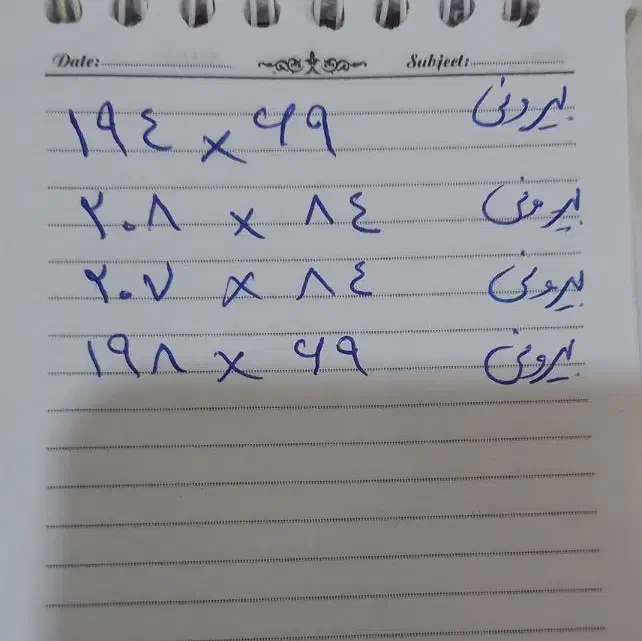 Date: Subject:
بیرونی ۶۹ × ۱۹٤
بیرونی ۸٤ × ۲۰۸
بیرونی ۸٤ × ۲۰۷
بیرونی ۶۹ × ۱۹۸